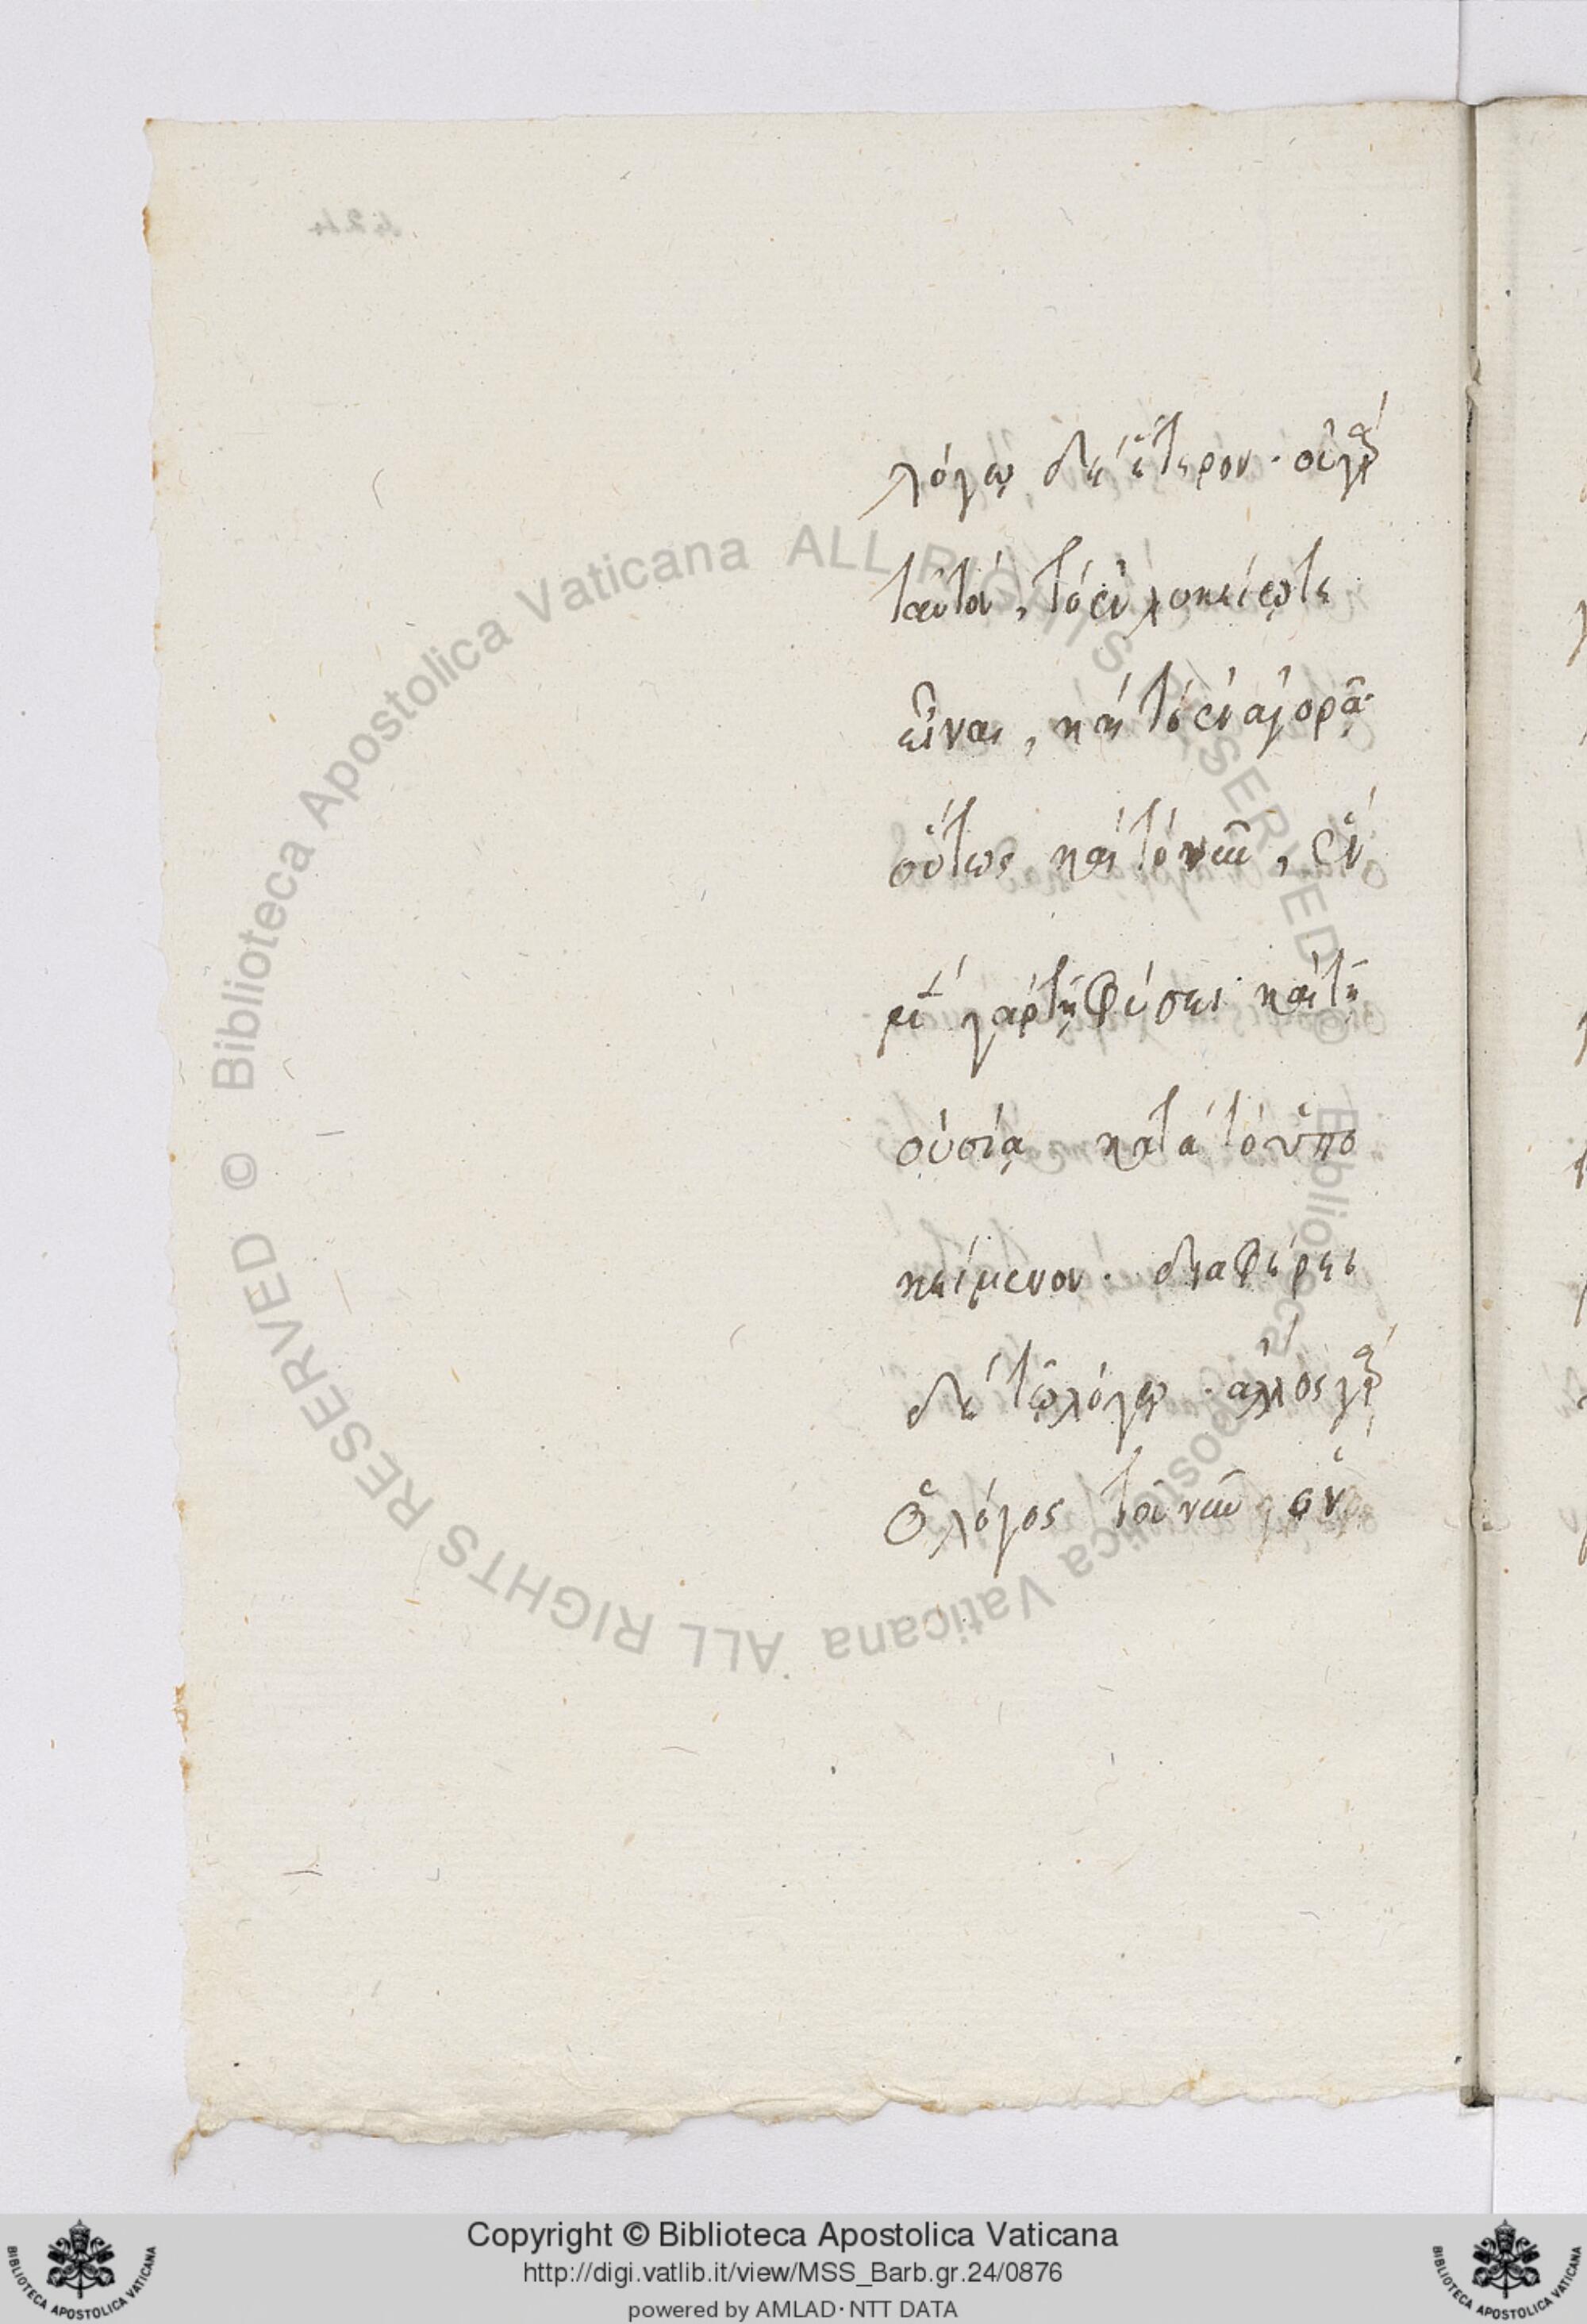 λόγῳ δὲ ἕτερον. οὐ γὰρ
ταυτὸν, τὸ ἐν λυκείῳ τε
εἶναι, καὶ τὸ ἐν ἀγορᾷ.
οὕτως καὶ τὸ νῦν, ἓν
μὲν γὰρ τῇ φύσει καὶ τῇ
οὐσίᾳ κατὰ τὸ ὑπο
κείμενον. διαφέρει
δὲ τῷ λόγῳ. ἄλλος γὰρ
ὁ λόγος τοῦ νῦν, ὃν
Biblioteca Apostolica Vaticana ALL RIGHTS RESERVED ©
Biblioteca Apostolica Vaticana ALL RIGHTS RESERVED ©
Copyright © Biblioteca Apostolica Vaticana
http://digi.vatlib.it/view/MSS_Barb.gr.24/0876
powered by AMLAD · NTT DATA
BIBLIOTECA APOSTOLICA VATICANA
BIBLIOTECA APOSTOLICA VATICANA